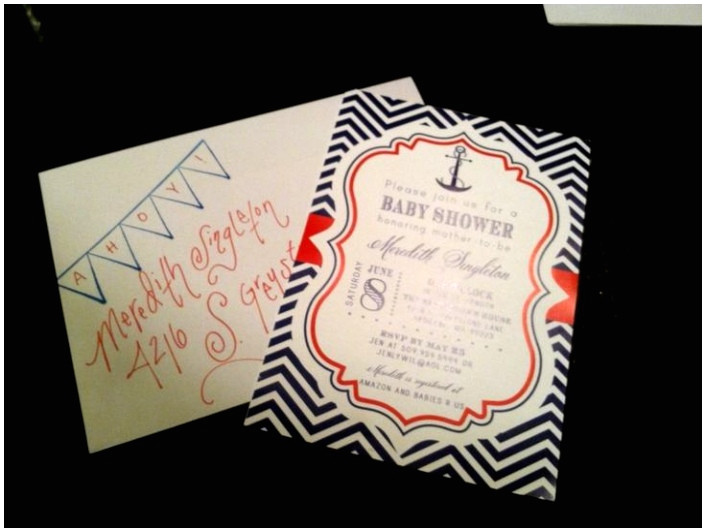 AHOY!
Meredith Singleton
4216 S. Greyst
Please join us for a
BABY SHOWER
honoring mother-to-be
Meredith Singleton
SATURDAY
JUNE
8
CLOCK
HOUSE
LANE
RSVP BY MAY 25
JEN AT 509.954.5999 OR
JENLYWIL@AOL.COM
Meredith is registered at
AMAZON AND BABIES R US